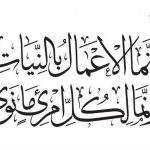 نَّمَا الأَعْمَالُ بِالنِّيَّاتِ
إِنَّمَا لِكُلِّ امْرِئٍ مَا نَوَى